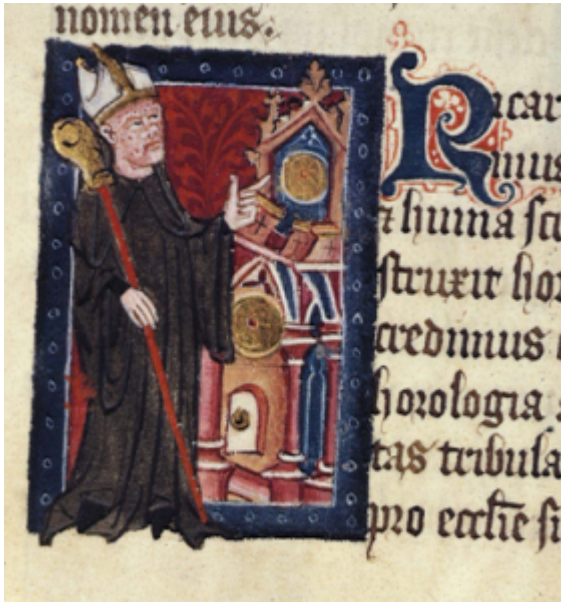 nomen eius.
Ricar
mus
⁊ huina sci
struxit hor
credimus
horologia s
tas tribula
pro ecclīe si